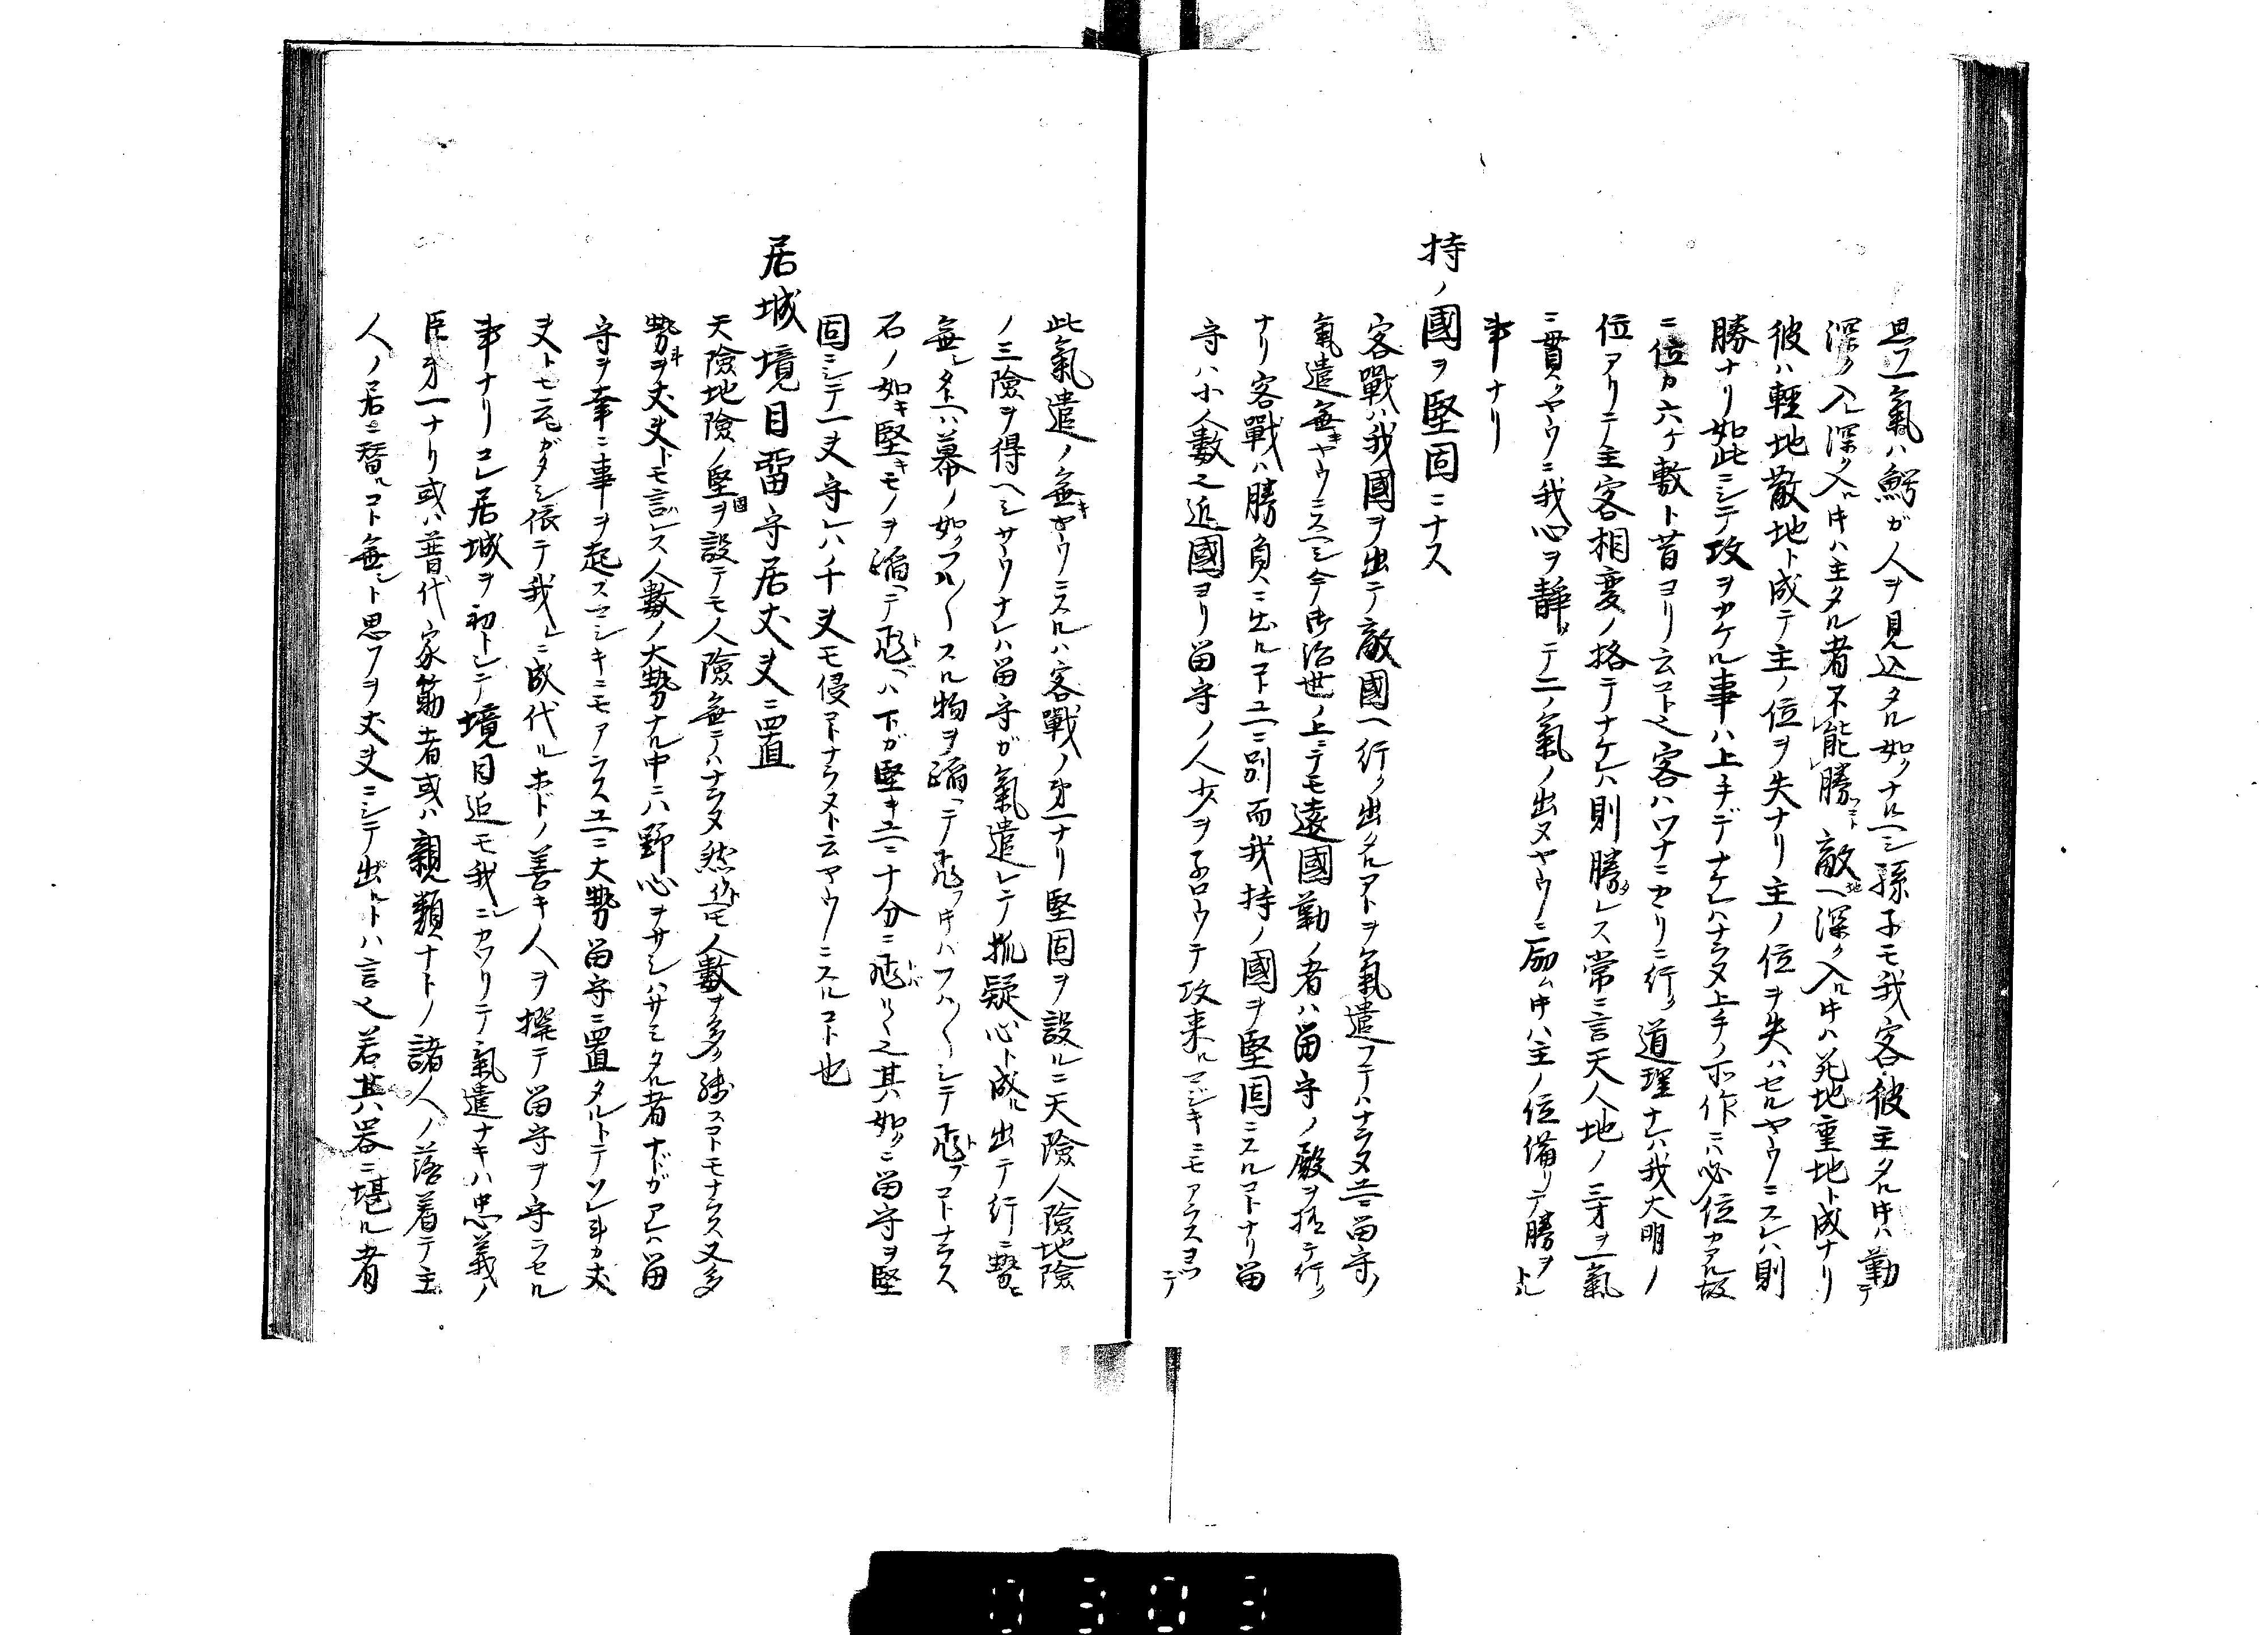 思フ一氣ハ鰐ガ人ヲ見込タル如クナルヘシ孫子モ我客彼主タル時ハ勤テ
深ク入ル深ク入ル时ハ主タル者不能勝コト敵地ヘ深ク入ル时ハ死地重地ト成ナリ
彼ハ輕地散地ト成テ主ノ位ヲ失ナリ主ノ位ヲ失ハセルヤウニスレハ則
勝ナリ如此ニシテ攻ヲカケル事ハ上手デナケレハナラヌ上手ノ所作ニハ必位カアル故
ニ位カ六ケ敷ト昔ヨリ云コト之客ハワナニカヽリニ行ク道理ナレハ我大明ノ
位アリテ主客相変ノ格テナケレハ則勝タレス常ニ言天人地ノ三才ヲ一氣
ニ貫クヤウニ我心ヲ静ニシテ二ノ氣ノ出ヌヤウニ励ム时ハ主ノ位備リテ勝ヲトル
事ナリ
持ノ國ヲ堅固ニナス
客戰ハ我國ヲ出テ敵國ヘ行ク出タルアトヲ氣遣フテハナラヌ故ニ留守ノ
氣遣無キヤウニスヘシ今御治世ノ上ニテモ遠國勤ノ者ハ留守ノ殿ヲ括テ行ク
ナリ客戰ハ勝負ニ出ルコト故ニ別而我持ノ國ヲ堅固ニスルコトナリ留
守ハ小人數之近國ヨリ留守ノ人少ヲ子ロウテ攻来ルマシキニモアラスヨツテ
此氣遣ノ無キヤウニスルハ客戰ノ第一ナリ堅固ヲ設ルニ天險人險地險
ノ三險ヲ得ヘシサウナレハ留守ガ氣遣レテ孤疑心ト成ル出テ行ニ
無シタトヘハ幕ノ如クフハ〱スル物ヲ踊ヘテ飛フ时ハフハ〱シテ飛ブコトナラス
石ノ如キ堅キモノヲ踊ヘテ飛ヘハ下ガ堅キ故ニ十分ニ飛ハルヽ之其ノ如クニ留守ヲ堅
固ニシテ一夫守レハ千夫モ侵コトナラヌト云ヤウニスルコト也
居城境目留守居丈夫ニ置
天險地險ノ堅固ヲ設テモ人險無テハナラヌ然トモ人數ヲ多ク残スコトモナラス又多
勢斗ヲ丈夫トモ言レス人數ノ大勢ナル中ニハ野心ヲサシハサミタル者ナドガアレハ留
守ヲ幸ニ事ヲ起スマシキニモアラス故ニ大勢留守ニ置タルトテソレ斗カ丈
夫トモ云ガタシ依テ我レニ成代ルホドノ善キ人ヲ撰テ留守ヲ守ラセル
事ナリコレ居城ヲ初トシテ境目迄モ我レニカワリテ氣遣ナキハ忠義ノ
臣第一ナリ或ハ普代家筋者或ハ親類ナトノ諸人ノ落着テ主
人ノ居ニ替ルコト無シト思フヲ丈夫ニシテ出ルトハ言之若其ノ器ニ堪ル者
0303